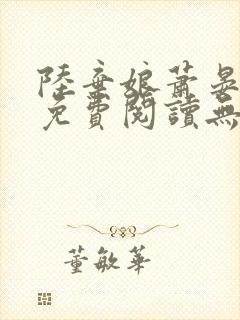 陸棄娘蕭晏
免費閱讀無
董敏華